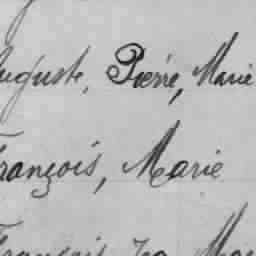 Auguste, Pierre, Marie
François, Marie
François